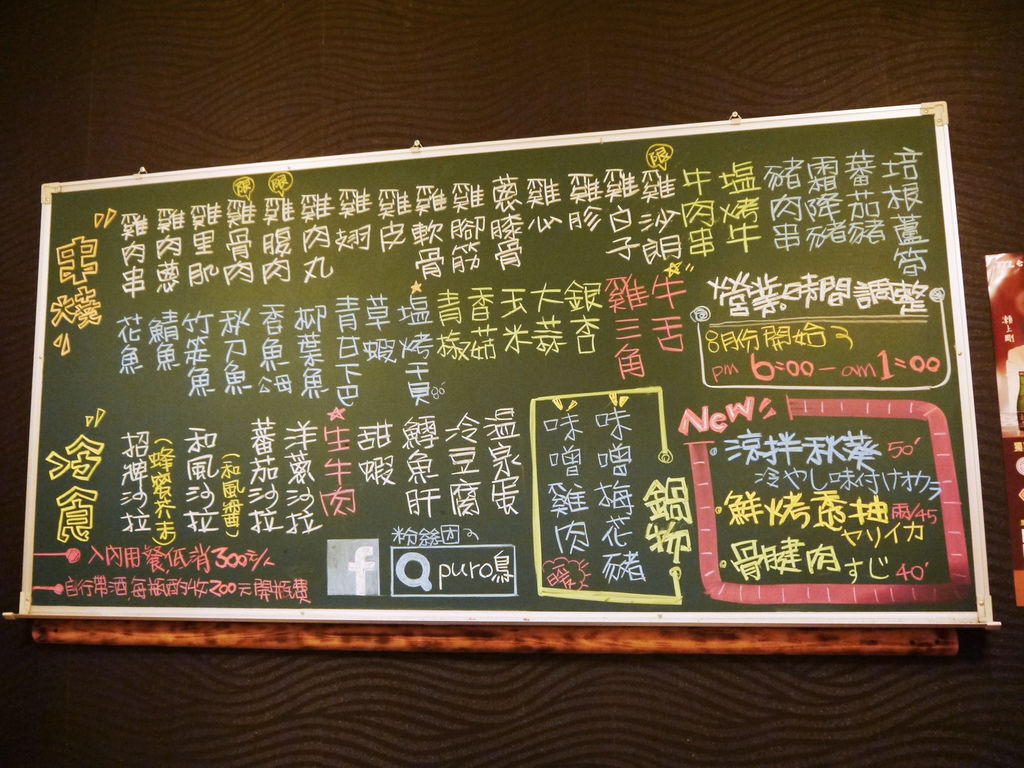 串燒
雞肉串
雞肉蔥
雞里肌
限
雞骨肉
限
雞腹肉
雞肉丸
雞翅
雞皮
雞軟骨
雞腳筋
蔥膝骨
雞心
雞胗
雞白子
限
雞沙朗
牛肉串
塩烤牛
豬肉串
霜降豬
蕃茄豬
培根蘆筍
花魚
鯖魚
竹筴魚
秋刀魚
香魚公母
柳葉魚
青甘下巴
草蝦
塩烤干貝80
青椒
香菇
玉米
大蒜
銀杏
雞三角
牛舌
營業時間調整
8月份開始
pm 6:00-am 1:00
冷食
招牌沙拉
(蜂蜜芥末)
和風沙拉
(和風醬)
蕃茄沙拉
洋蔥沙拉
生牛肉
甜蝦
鱈魚肝
冷豆腐
溫泉蛋
鍋物
味噌梅花豬
味噌雞肉
暖
New
涼拌秋葵 50'
冷やし味付けオクラ
鮮烤透抽 兩/45
ヤリイカ
骨腱肉 すじ 40'
入內用餐低消300元/人
自行帶酒,每瓶酌收200元開瓶費
f
粉絲團
puro鳥